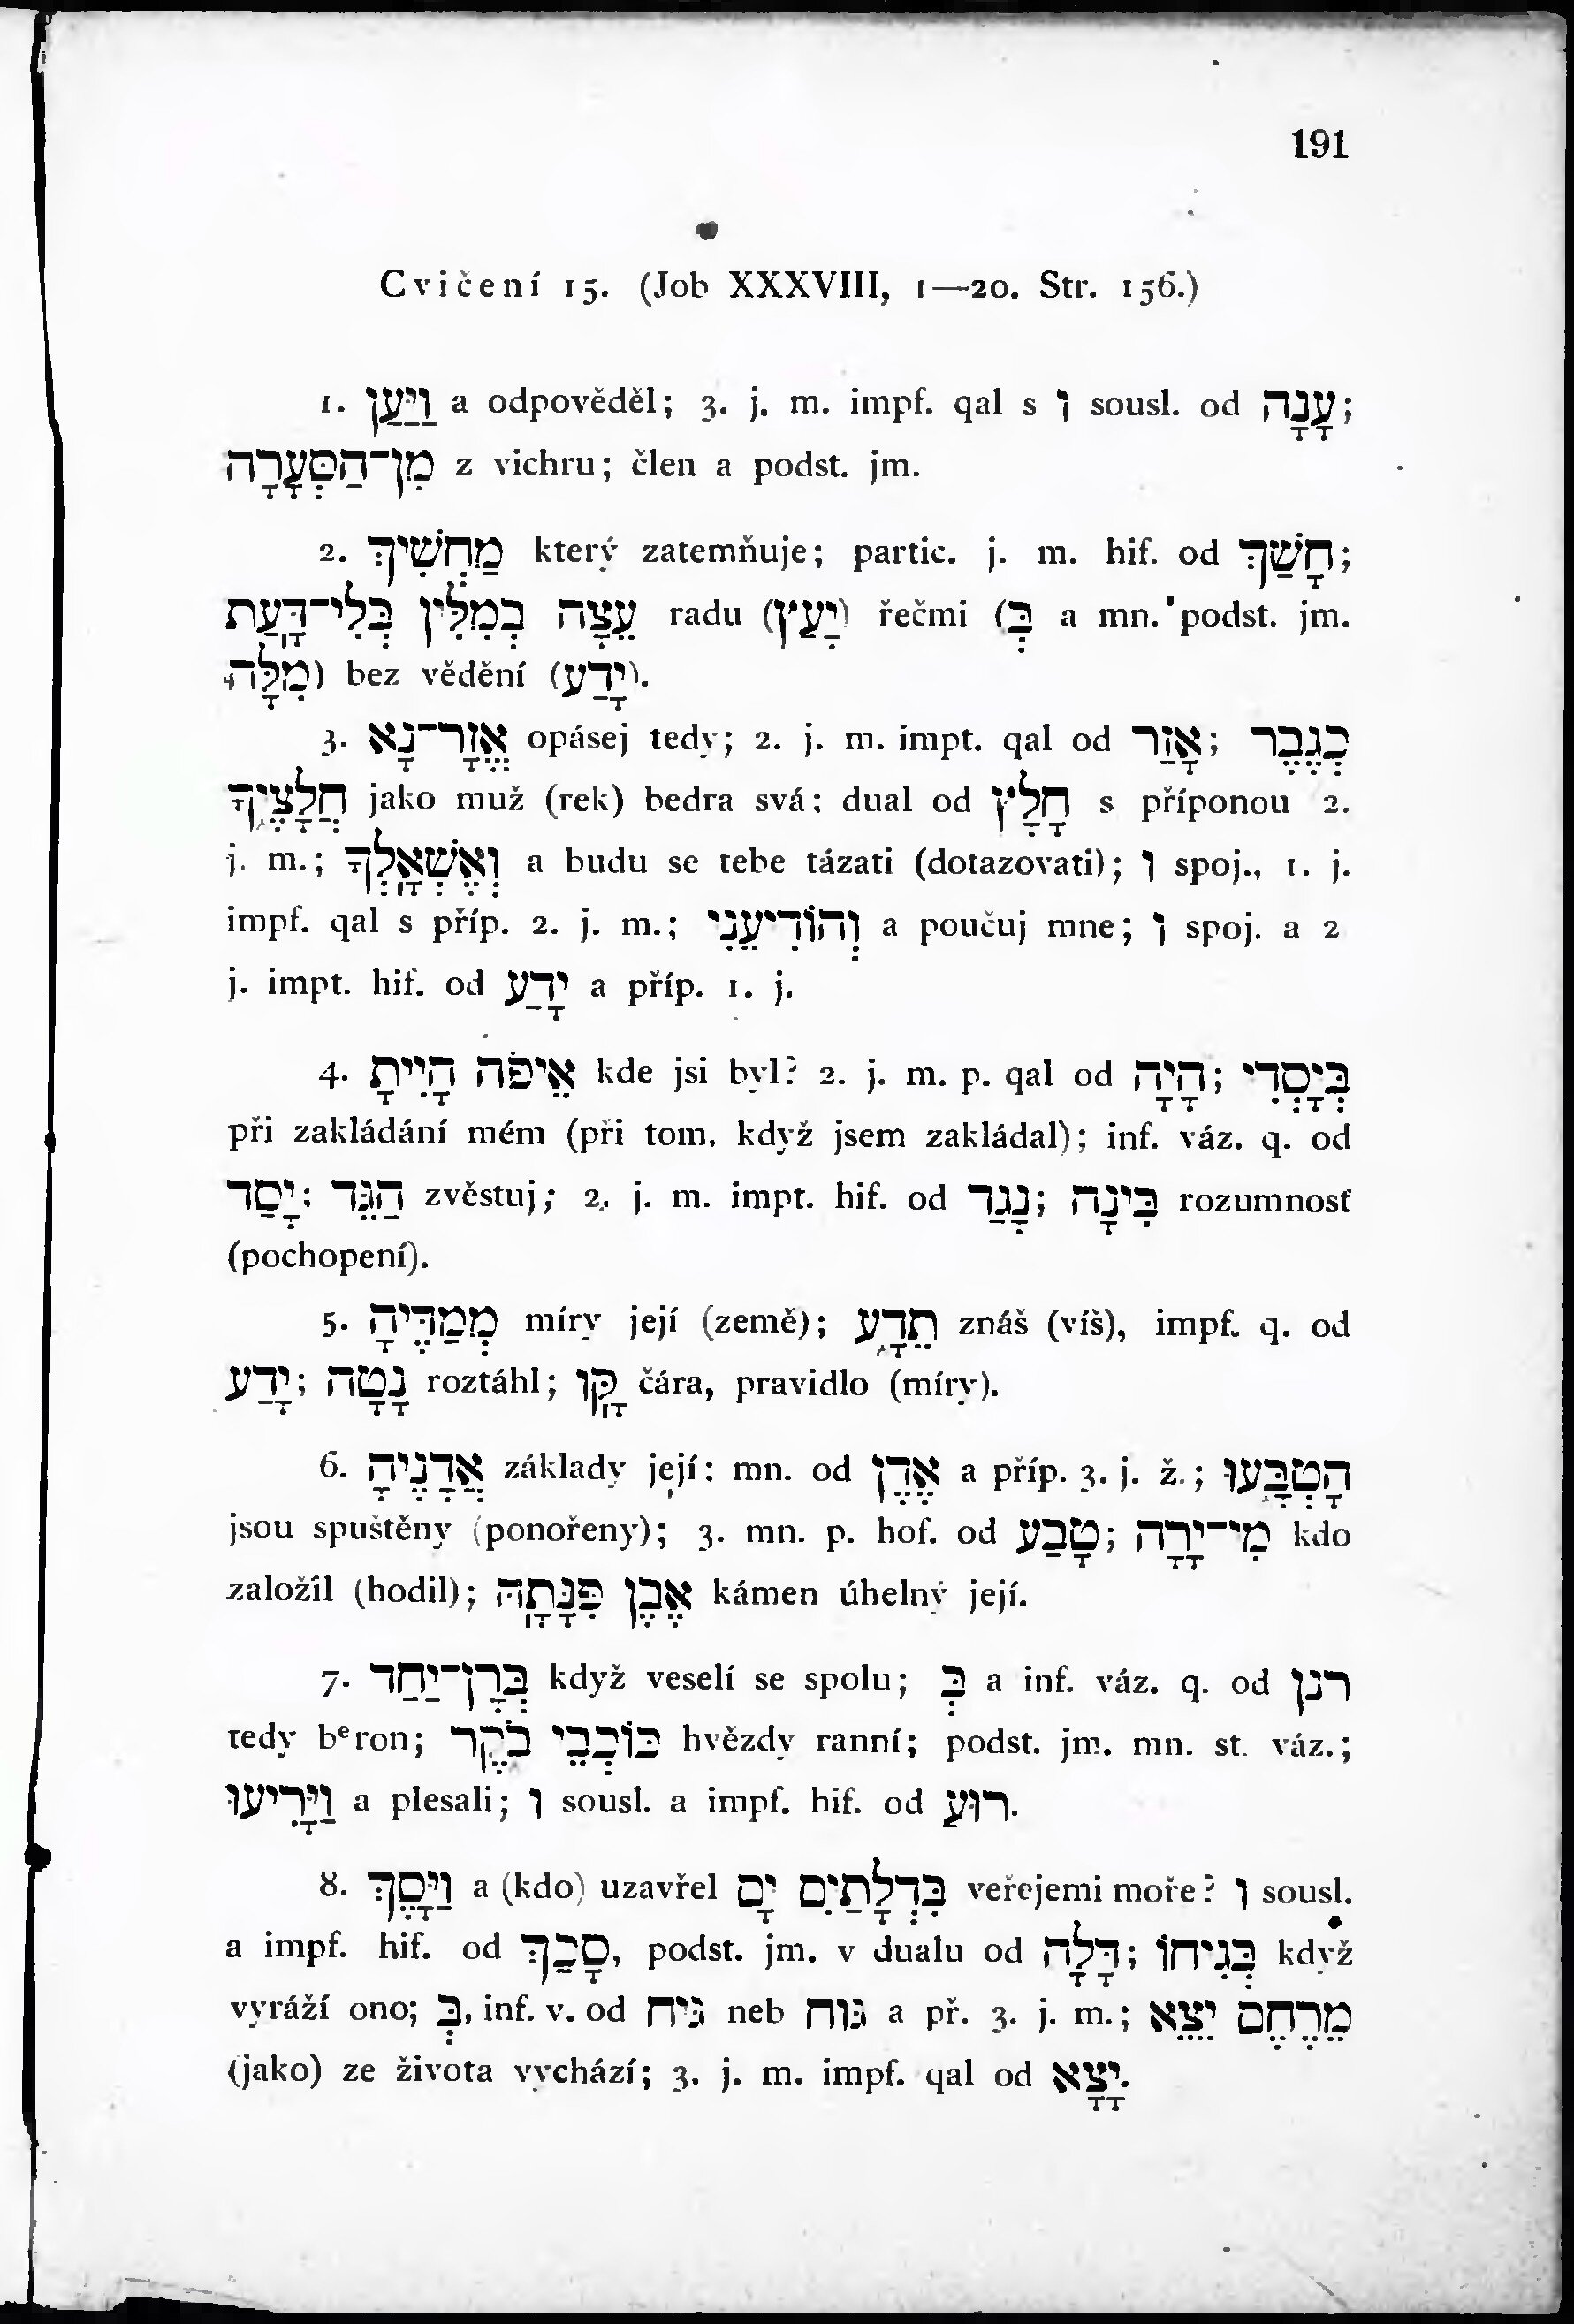 191
Cvičení 15. (Job XXXVIII, 1—20. Str. 156.)
1. וַיַּעַן a odpověděl; 3. j. m. impf. qal s וְ sousl. od עָנָה;
מִן־הַסְּעָרָה z vichru; člen a podst. jm.
2. מַחְשִׁיךְ který zatemňuje; partic. j. m. hif. od חָשַׁךְ;
עֵצָה בְמִלִּין בְּלִי־דָעַת radu (יָעַץ) řečmi (בְּ a mn. podst. jm.
מִלָּה) bez vědění (יָדַע).
3. אֱזָר־נָא opásej tedy; 2. j. m. impt. qal od אָזַר; כְגֶבֶר
חֲלָצֶיךָ jako muž (rek) bedra svá; dual od חָלָץ s příponou 2.
j. m.; וְאֶשְׁאָלְךָ a budu se tebe tázati (dotazovati); וְ spoj., 1. j.
impf. qal s příp. 2. j. m.; וְהוֹדִיעֵנִי a poučuj mne; וְ spoj. a 2
j. impt. hif. od יָדַע a příp. 1. j.
4. אֵיפֹה הָיִיתָ kde jsi byl? 2. j. m. p. qal od הָיָה; בְּיָסְדִי
při zakládání mém (při tom, když jsem zakládal); inf. váz. q. od
יָסַד; הַגֵּד zvěstuj; 2. j. m. impt. hif. od נָגַד; בִּינָה rozumnosť
(pochopení).
5. מְמַדֶּיהָ míry její (země); תֵדָע znáš (víš), impf. q. od
יָדַע; נָטָה roztáhl; קָּו čára, pravidlo (míry).
6. אֲדָנֶיהָ základy její; mn. od אֶדֶן a příp. 3. j. ž.; הָטְבָּעוּ
jsou spuštěny (ponořeny); 3. mn. p. hof. od טָבַע; מִי־יָרָה kdo
založil (hodil); אֶבֶן פִּנָּתָהּ kámen úhelný její.
7. בְּרָן־יַחַד když veselí se spolu; בְּ a inf. váz. q. od רנן
tedy bᵉron; כּוֹכְבֵי בֹקֶר hvězdy ranní; podst. jm. mn. st. váz.;
וַיָּרִיעוּ a plesali; וְ sousl. a impf. hif. od רוּעַ.
8. וַיָּסֶךְ a (kdo) uzavřel בִּדְלָתַיִם יָם veřejemi moře? וְ sousl.
a impf. hif. od סָכַךְ, podst. jm. v dualu od דָּלָה; בְּגִיחוֹ když
vyráží ono; בְּ, inf. v. od גִּיח neb גּוּח a př. 3. j. m.; מֵרֶחֶם יֵצֵא
(jako) ze života vychází; 3. j. m. impf. qal od יָצָא.